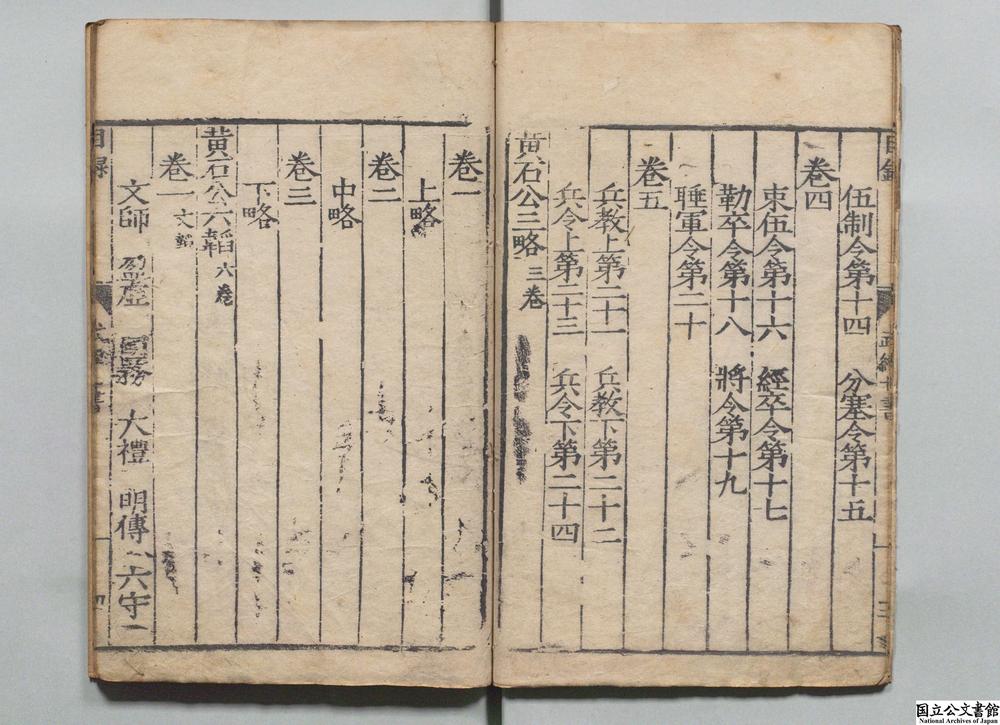 伍制令第十四　分塞令第十五
卷四
束伍令第十六　經卒令第十七
勒卒令第十八　將令第十九
踵軍令第二十
卷五
兵教上第二十一　兵教下第二十二
兵令上第二十三　兵令下第二十四
黃石公三略 三卷
卷一
上略
卷二
中略
卷三
下略
黃石公六韜 六卷
卷一 文韜
文師　盈虛　國務　大禮　明傳　六守
目録
国立公文書館
National Archives of Japan